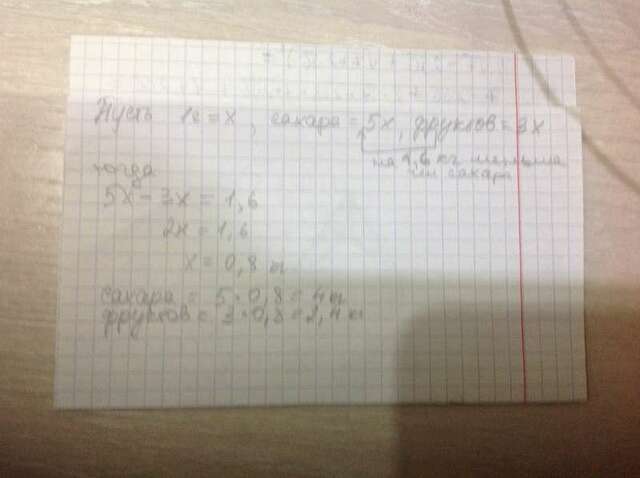 Пусть 1ч = x, сахара = 5x, фруктов = 3x
на 1,6 кг меньше
чем сахара
тогда
5x - 3x = 1,6
2x = 1,6
x = 0,8 кг
сахара = 5·0,8 = 4 кг
фруктов = 3·0,8 = 2,4 кг